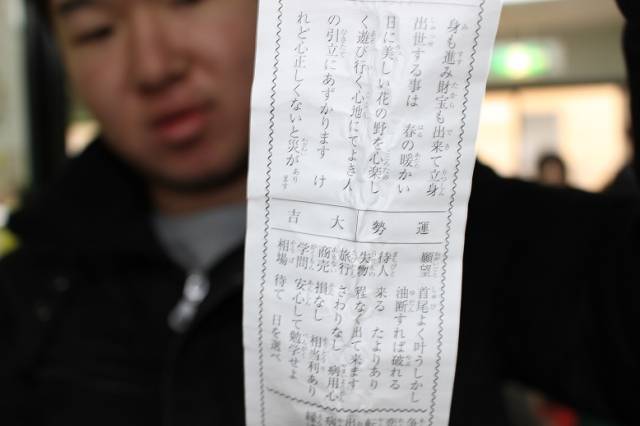 身も進み財宝も出来て立身
出世する事は 春の暖かい
日に美しい花の野を心楽し
く遊び行く心地にてよき人
の引立にあずかります け
れど心正しくないと災があります
運勢 大吉
願望 首尾よく叶うしかし
油断すれば破れる
待人 来る たよりあり
失物 程なく出て来ます
旅行 さわりなし 病用心
商売 損なし 相当利あり
学問 安心して勉学せよ
相場 待て 日を選べ